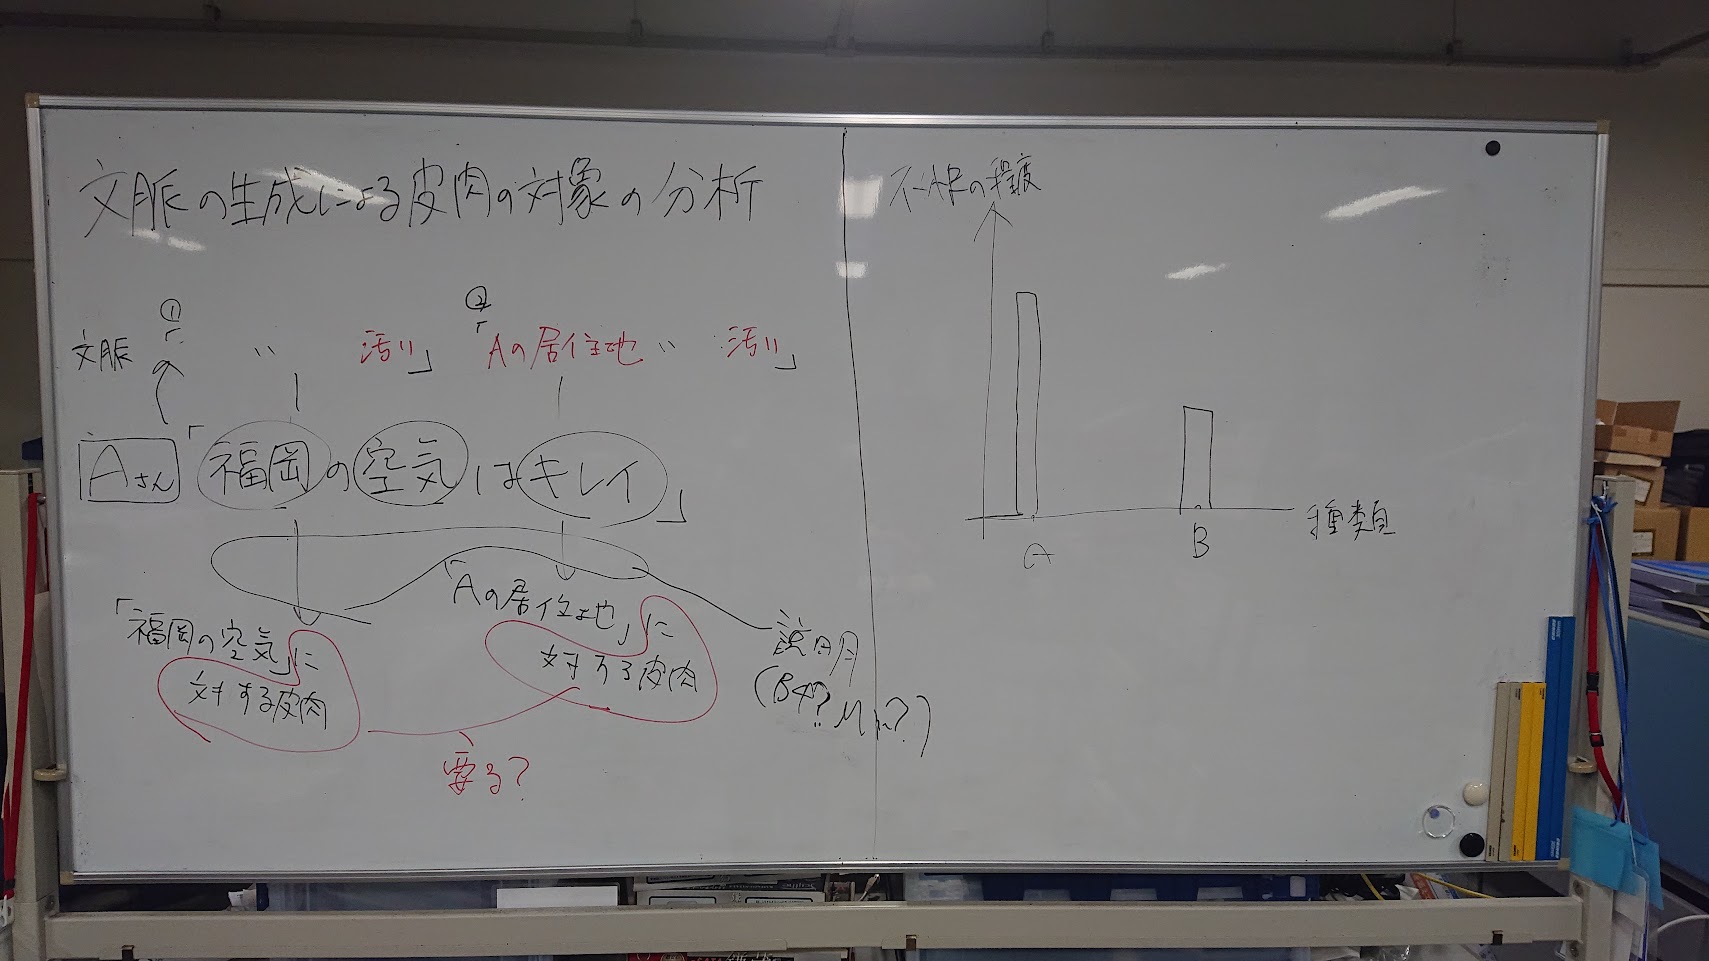 文脈の生成による皮肉の対象の分析
文脈 ①「 〃 汚い」 ②「Aの居住地 〃 汚い」
Aさん「福岡の空気はキレイ」
「福岡の空気」に
対する皮肉
「Aの居住地」に
対する皮肉
説明
要る?
不一致の程度
A
B
種類